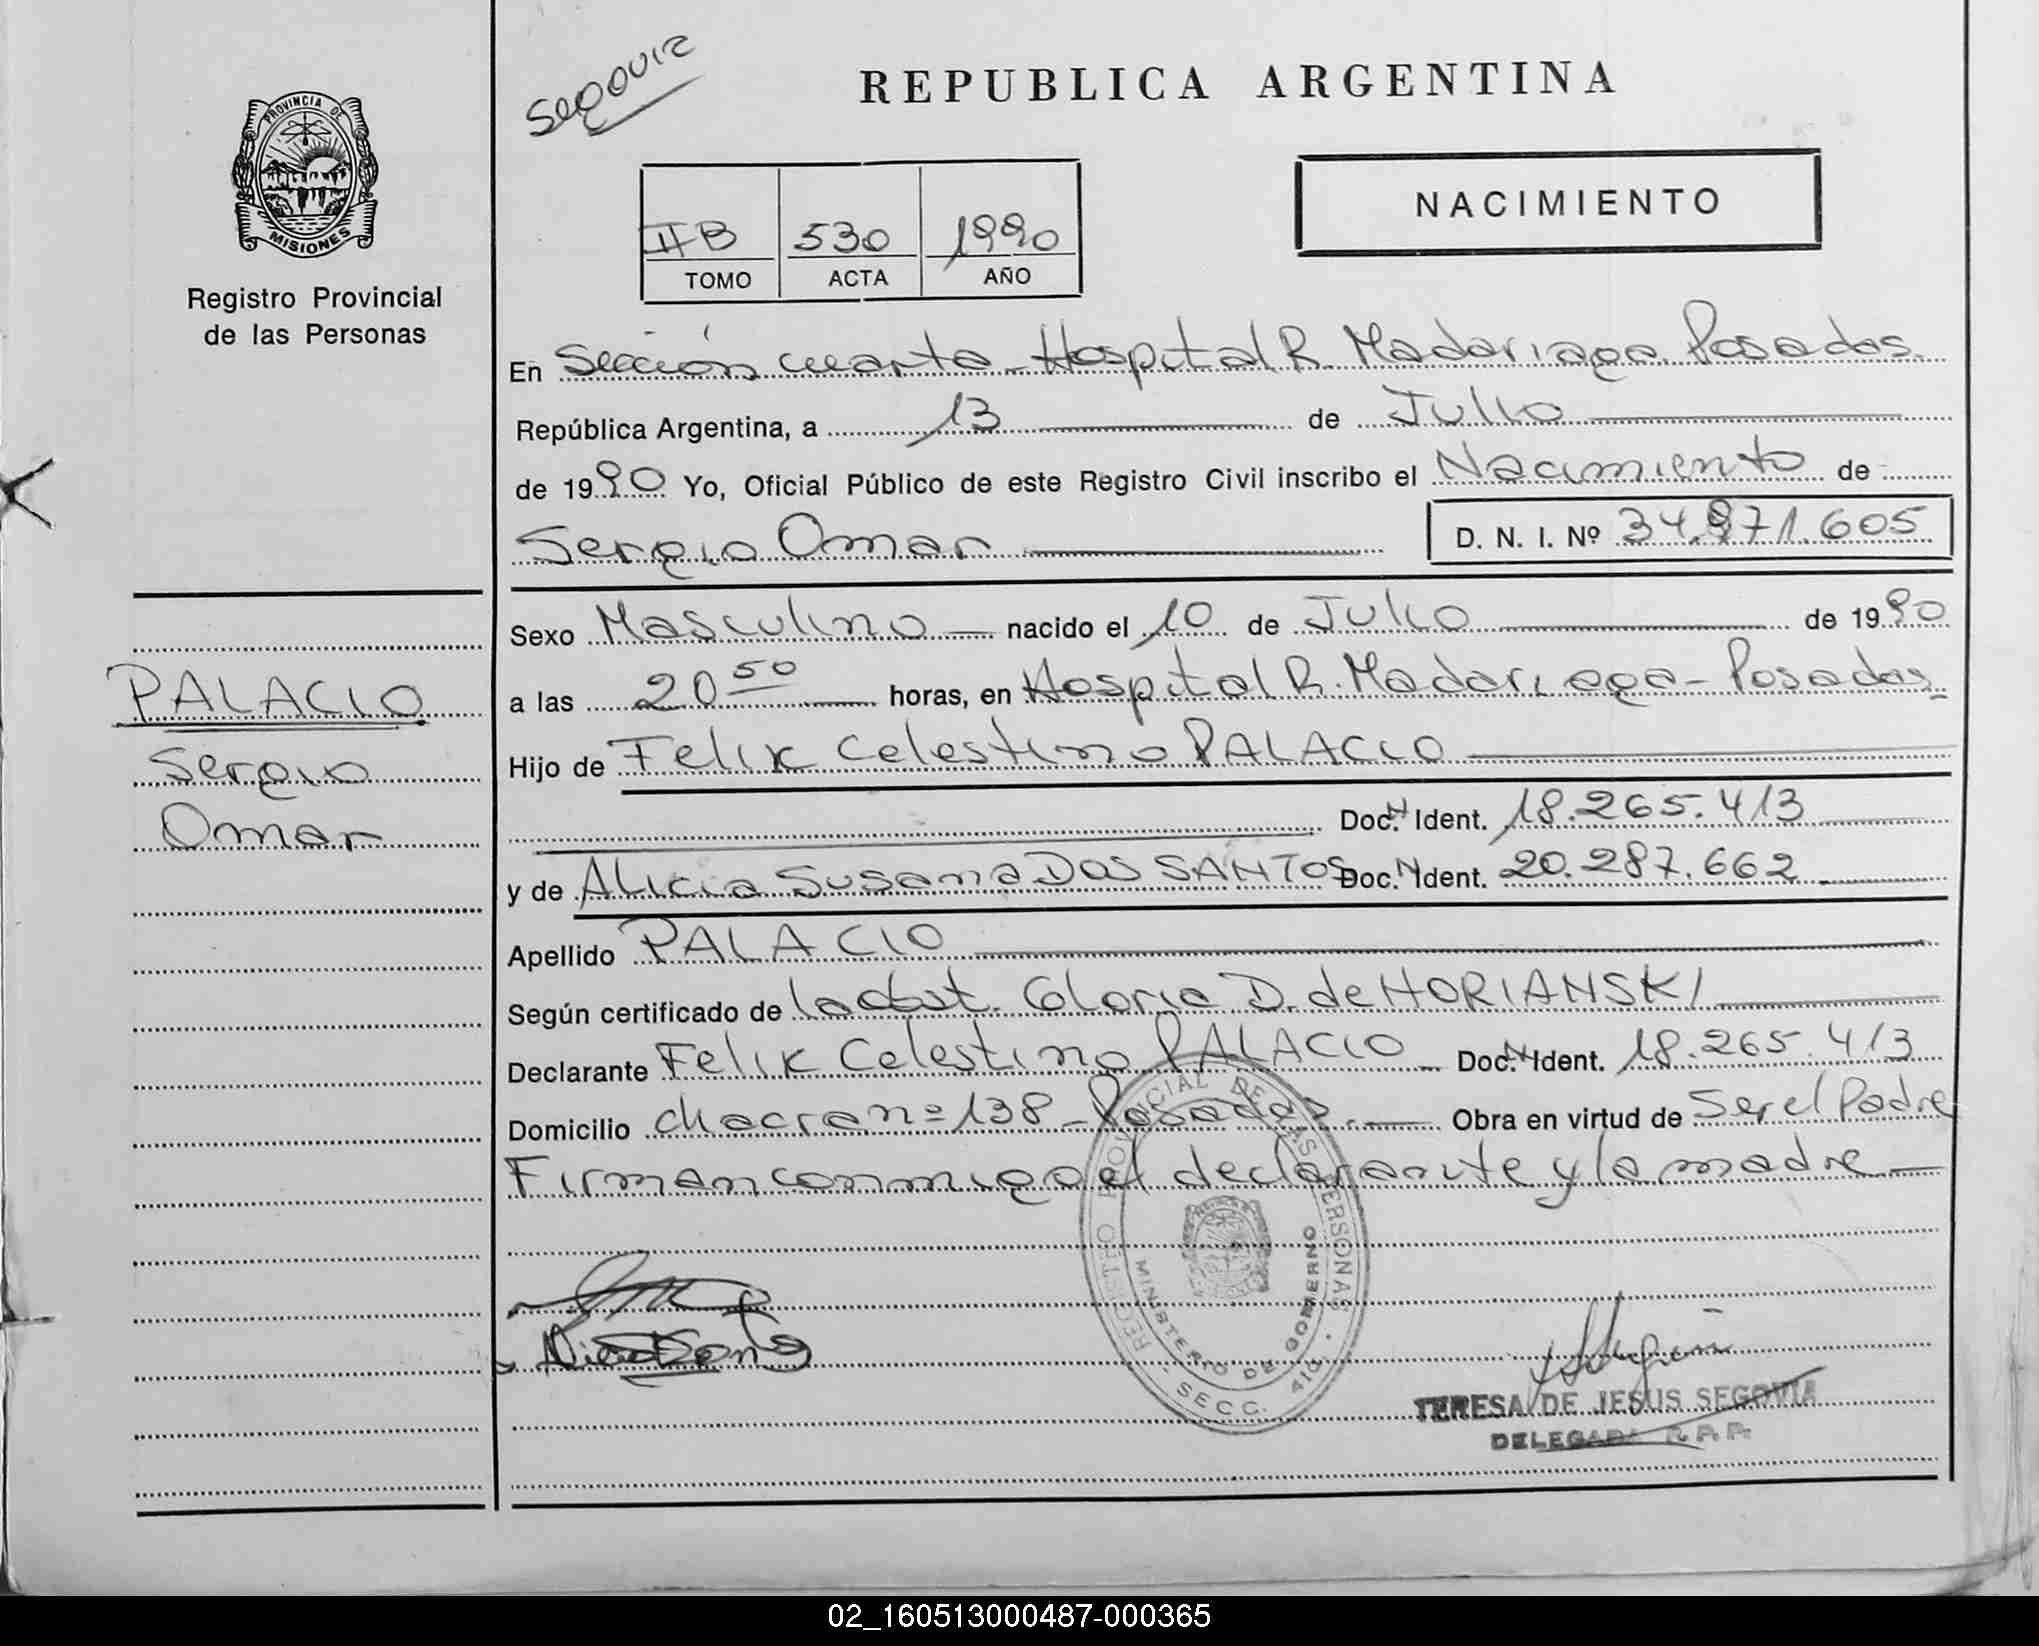 Segovia
REPUBLICA ARGENTINA
PROVINCIA DE MISIONES
Registro Provincial
de las Personas
IIB 530 1990
TOMO ACTA AÑO
NACIMIENTO
En Sección cuarta - Hospital R. Madariaga Posadas
República Argentina, a 13 de Julio
de 1990 Yo, Oficial Público de este Registro Civil inscribo el Nacimiento de
Sergio Omar D. N. I. Nº 34.871.605
Sexo Masculino nacido el 10 de Julio de 1990
a las 20 50 horas, en Hospital R. Madariaga - Posadas
Hijo de Felix Celestino PALACIO
Doc. N Ident. 18.265.413
y de Alicia Susana DOS SANTOS Doc. N Ident. 20.287.662
Apellido PALACIO
Según certificado de la obst. Gloria D. de HORIANSKI
Declarante Felix Celestino PALACIO Doc. N Ident. 18.265.413
Domicilio chacra nº 138 - Posadas. Obra en virtud de Ser el Padre
Firman conmigo el declarante y la madre
PALACIO
Sergio
Omar
REGISTRO PROVINCIAL DE LAS PERSONAS
MINISTERIO DE GOBIERNO
SECC. 4ta
TERESA DE JESUS SEGOVIA
DELEGADA R.P.P.
02_160513000487-000365